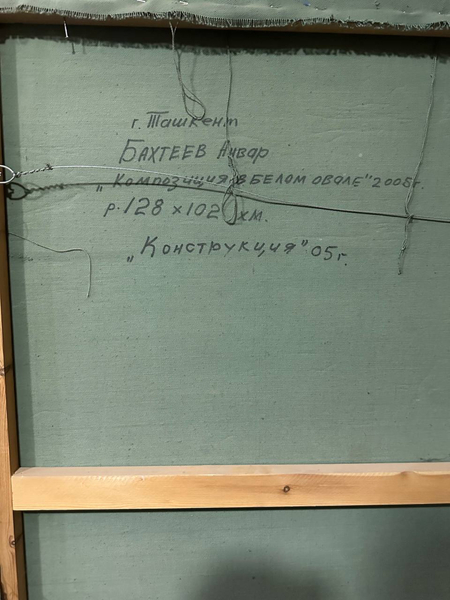 г. Ташкент
БАХТЕЕВ Анвар
„Композиция в БЕЛОМ ОВАЛЕ" 2005г.
р. 128 х 102 хм.
„Конструкция" 05г.